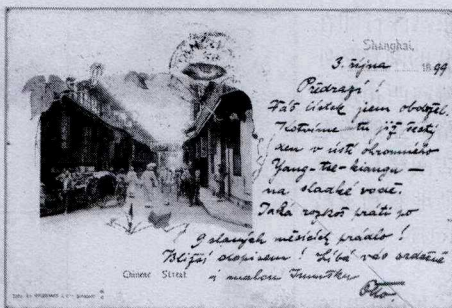 Shanghai,
3. října 1899
Předrazí!
Váš lístek jsem obdržel.
Kotvíme tu již šestý
den v ústí ohromného
Yang-tse-kiangu —
na sladké vodě.
Jaká rozkoš práti po
9 slaných měsících prádlo!
Bližší dopisem! Líbá vás srdečně
i malou
Chinese Street